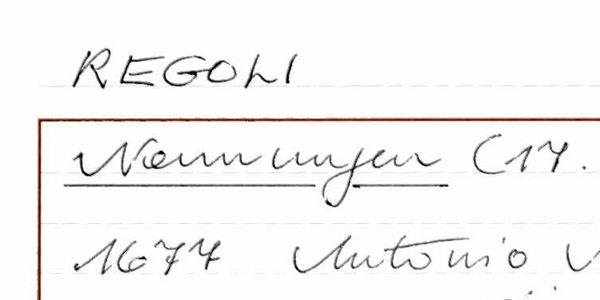 REGOLI
Nennungen (17.
1677 Antonio